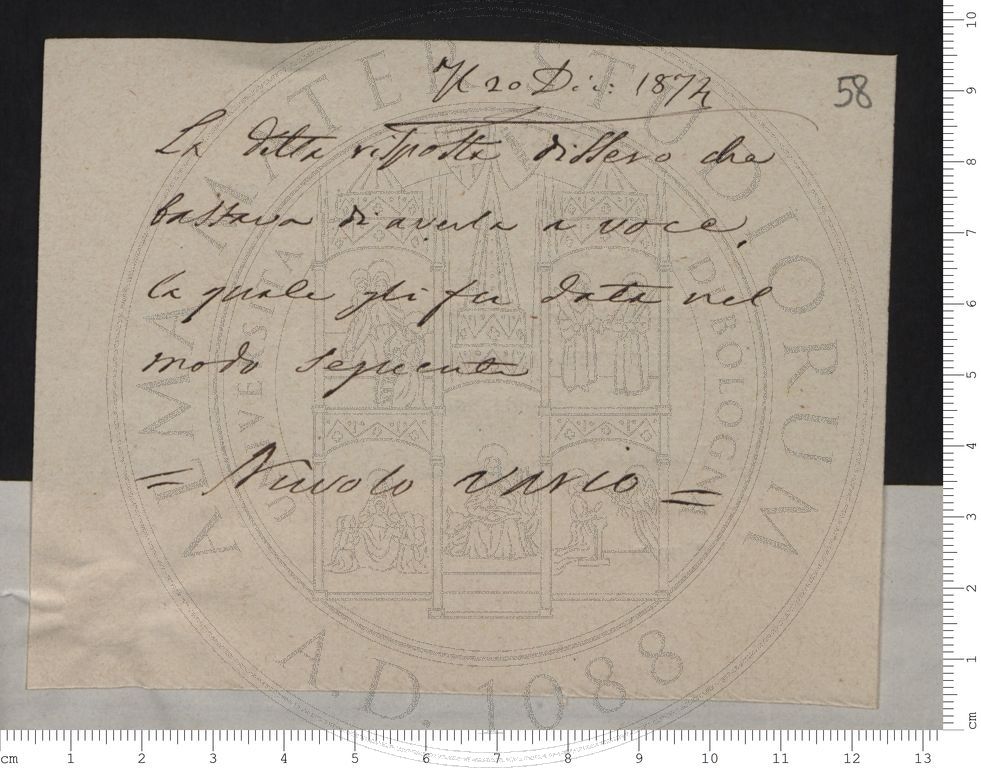 Il 20 Dic: 1874
58
La detta risposta dissero che
bastava di averla a voce,
la quale gli fu data nel
modo seguente
= Nuvolo vario =
ALMA MATER STUDIORUM
UNIVERSITÀ DI BOLOGNA
A.D. 1088
10
9
8
7
6
5
4
3
2
1
cm
cm 1 2 3 4 5 6 7 8 9 10 11 12 13